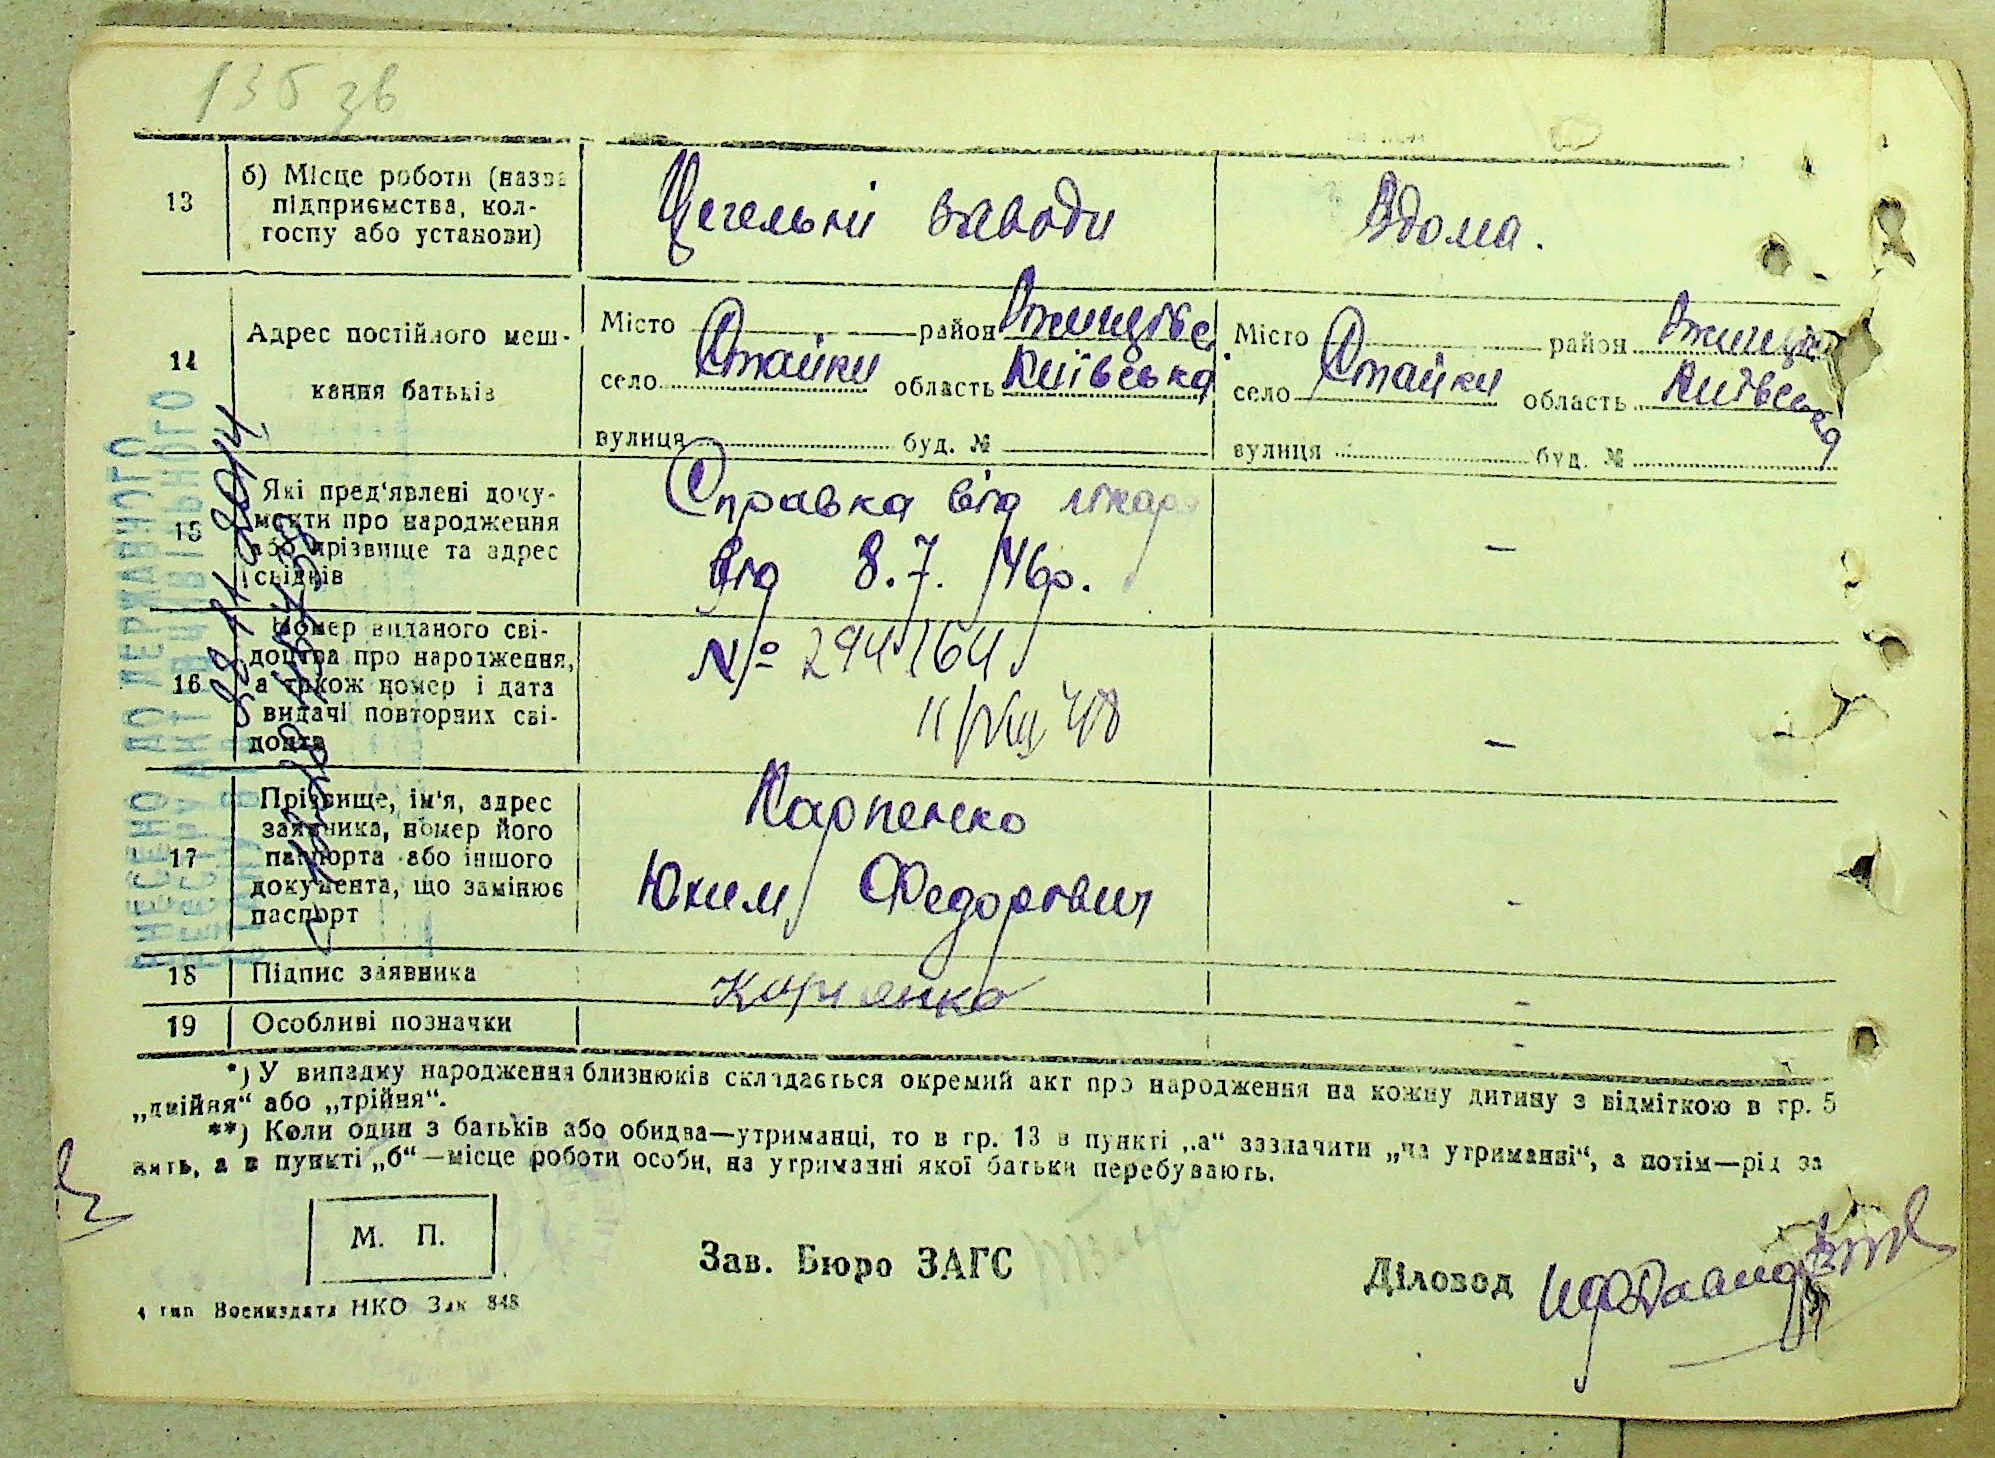 136 зв
13
б) Місце роботи (назва
підприємства, кол-
госпу або установи)
Цегельні заводи
Вдома.
14
Адрес постійного меш-
кання батьків
Місто район Ржищівс
село Стайки область Київська
вулиця буд. №
Місто район
село Стайки область Київська
вулиця буд. №
15
Які пред'явлені доку-
менти про народження
або прізвище та адрес
свідків
Справка від лікаря
від 8.7. 46р.
—
16
Номер виданого сві-
доцтва про народження,
а також номер і дата
видачі повторних сві-
доцтв
№ 294164
—
17
Прізвище, ім'я, адрес
заявника, номер його
паспорта або іншого
документа, що замінює
паспорт
Карпенко
Юхим Федорович
-
18
Підпис заявника
Карпенко
-
19
Особливі позначки
-
ВНЕСЕНО ДО ДЕРЖАВНОГО
РЕЄСТРУ АКТІВ ЦИВІЛЬНОГО
*) У випадку народження близнюків складається окремий акт про народження на кожну дитину з відміткою в гр. 5
„двійня“ або „трійня“.
**) Коли один з батьків або обидва—утриманці, то в гр. 13 в пункті „а“ зазначити „на утриманні“, а потім—рід за
нять, а в пункті „б“—місце роботи особи, на утриманні якої батьки перебувають.
М. П.
Зав. Бюро ЗАГС
Діловод
4 тип Воениздата НКО Зак 848